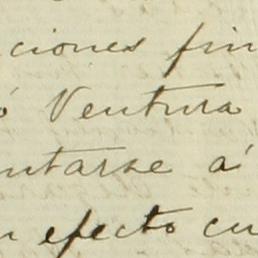 ciones fin
ó Ventura
ntarse á
n efecto cu